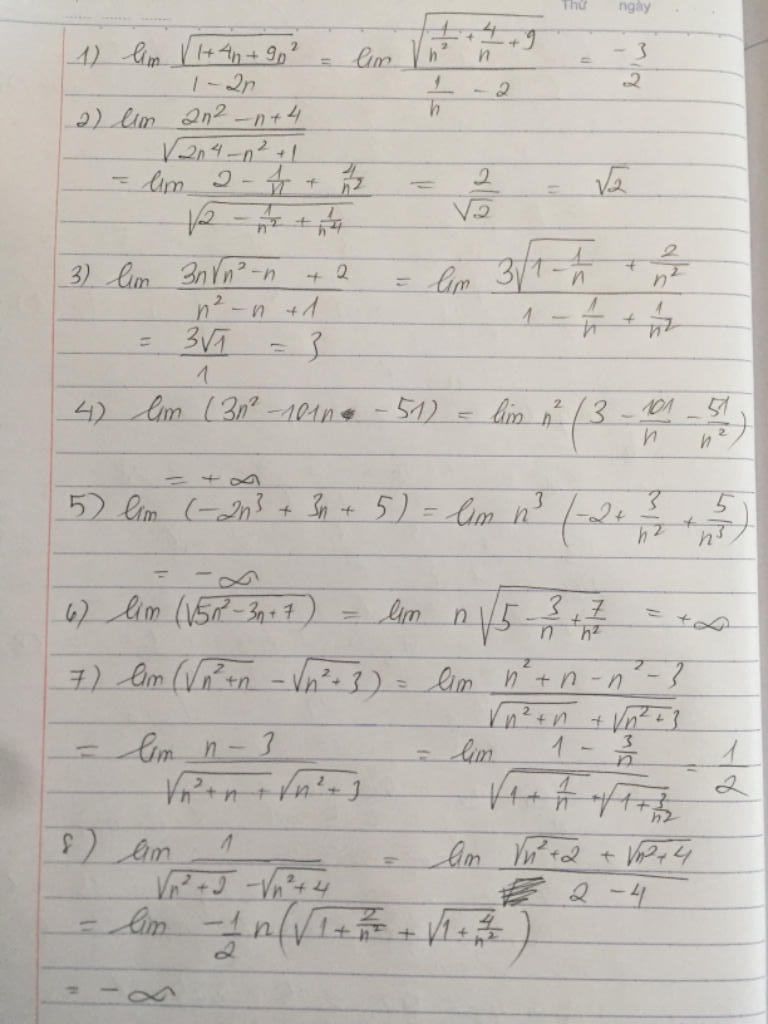 Thứ ngày
1) lim √(1+4n+9n²) / (1-2n) = lim √(1/n² + 4/n + 9) / (1/n - 2) = -3/2
2) lim (2n² - n + 4) / √(2n⁴ - n² + 1)
= lim (2 - 1/n + 4/n²) / √(2 - 1/n² + 1/n⁴) = 2/√2 = √2
3) lim (3n√(n² - n) + 2) / (n² - n + 1) = lim (3√(1 - 1/n) + 2/n²) / (1 - 1/n + 1/n²)
= 3√1 / 1 = 3
4) lim (3n² - 101n - 51) = lim n² (3 - 101/n - 51/n²)
= +∞
5) lim (-2n³ + 3n + 5) = lim n³ (-2 + 3/n² + 5/n³)
= -∞
6) lim (√(5n² - 3n + 7)) = lim n√(5 - 3/n + 7/n²) = +∞
7) lim (√(n² + n) - √(n² + 3)) = lim (n² + n - n² - 3) / (√(n² + n) + √(n² + 3))
= lim (n - 3) / (√(n² + n) + √(n² + 3)) = lim (1 - 3/n) / (√(1 + 1/n) + √(1 + 3/n²)) = 1/2
8) lim 1 / (√(n² + 2) - √(n² + 4)) = lim (√(n² + 2) + √(n² + 4)) / (2 - 4)
= lim -1/2 n(√(1 + 2/n²) + √(1 + 4/n²))
= -∞